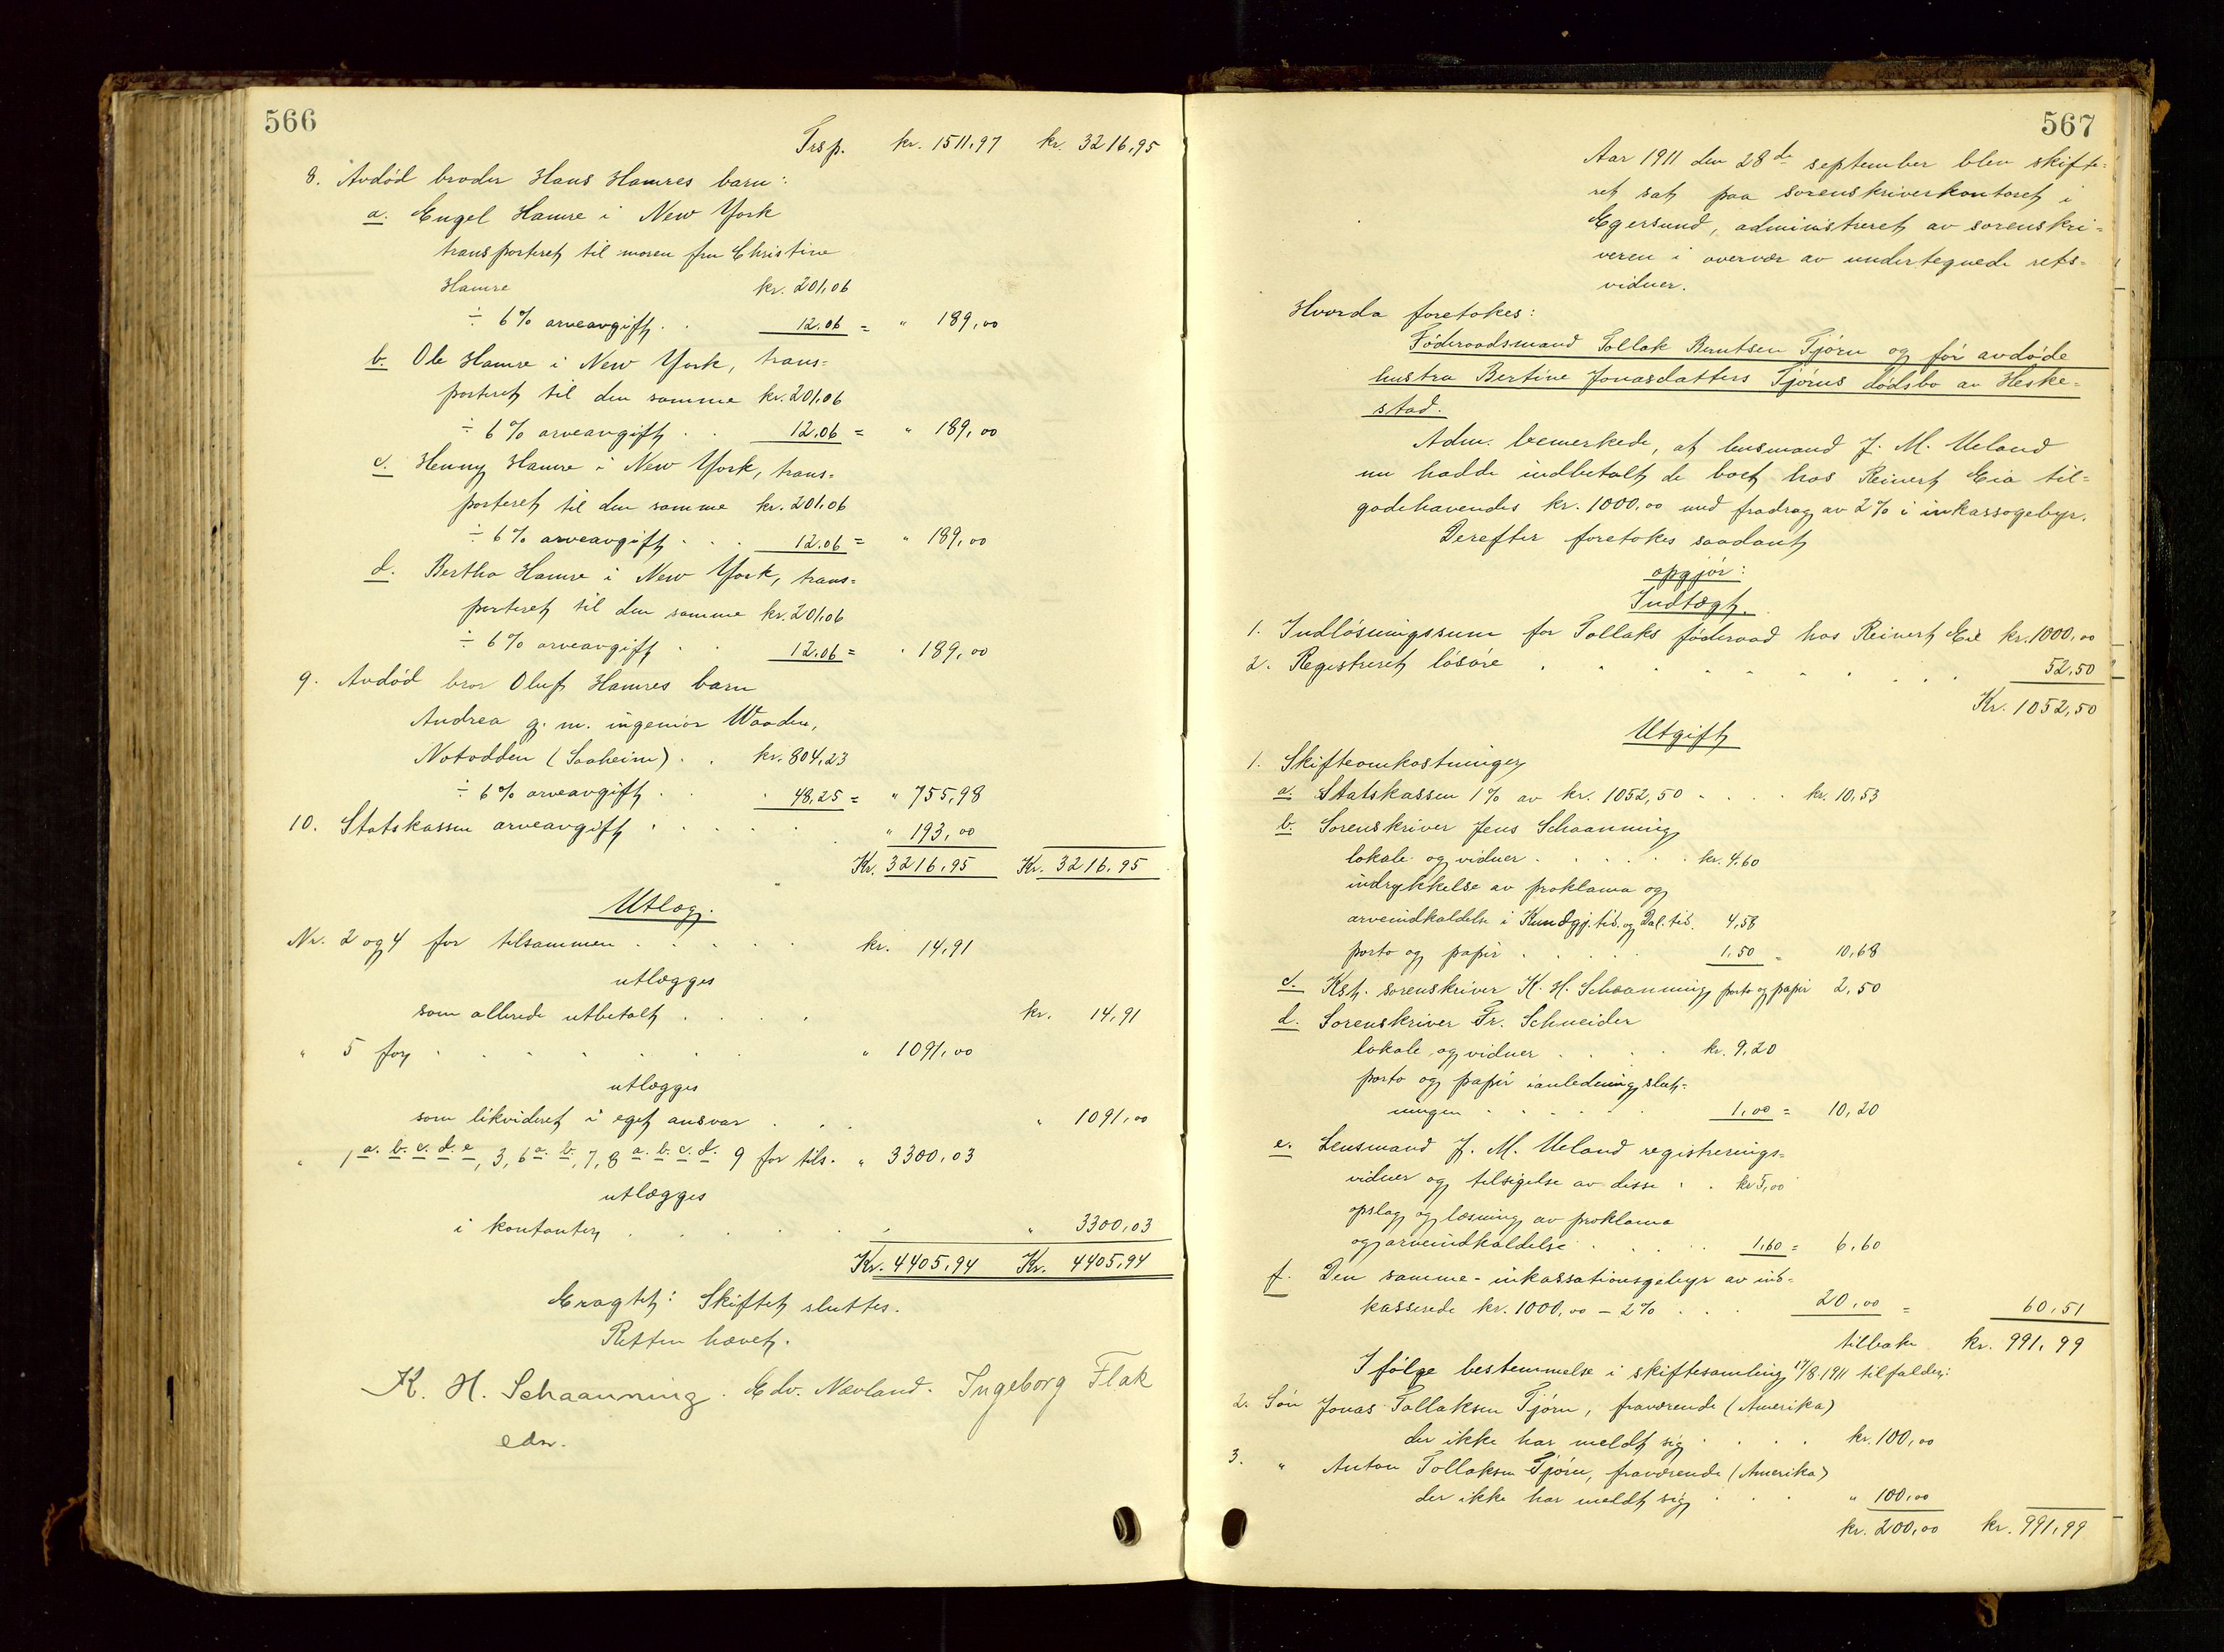 566
Trsp. kr. 1511,97 kr. 3216,95
8. Avdød broder Hans Hamres barn:
a. Engel Hamre i New York
transporteret til moren fru Christine
Hamre kr. 201,06
÷ 6% arveavgift . . 12.06 = " 189,00
b. Ole Hamre i New York, trans=
porteret til den samme kr. 201,06
÷ 6% arveavgift . . 12,06 = " 189,00
c. Henny Hamre i New York, trans=
porteret til den samme kr. 201,06
÷ 6% arveavgift . . . 12.06 = " 189,00
d. Bertha Hamre i New York, trans=
porteret til den samme kr. 201,06
÷ 6% arveavgift . . 12.06 = " 189,00
9. Avdød bror Oluf Hamres barn
Andrea g. m. ingeniør Waaden,
Notodden (Saaheim) . . kr. 804,23
÷ 6% arveavgift . . 48,25 = " 755,98
10. Statskassen arveavgift . . . . . " 193,00
Kr. 3216,95 Kr. 3216,95
Utlæg.
Nr. 2 og 4 for tilsammen . . . . . kr. 14,91
utlægges
som allerede utbetalt . . . . kr. 14,91
" 5 for . . . . . . . " 1091,00
utlægges
som likvideret i eget ansvar . . . " 1091,00
" 1 a. b. c. d. e, 3, 6 a. b, 7, 8 a. b. c. d. 9 for tils. " 3300,03
utlægges
i kontanter . . . . . . " 3300,03
Kr. 4405,94 Kr. 4405,94
Eragtet: Skiftet sluttes.
Retten hævet.
K. H. Schaanning. Edv. Nævland. Ingeborg Flak
edsv.
567
Aar 1911 den 28de september blev skifte=
ret sat paa sorenskriverkontoret i
Egersund, administreret av sorenskri=
veren i overvær av undertegnede rets=
vidner.
Hvorda foretokes:
Føderaadsmand Tollak Berntsen Tjørn og før avdøde
hustru Bertine Jonasdatters Tjørns dødsbo av Heske=
stad.
Adm. bemerkede, at lensmand J. M. Ueland
nu hadde indbetalt de boet hos Reinert Eia til=
godehavendes kr. 1000,00 med fradrag av 2% i inkassogebyr.
Derefter foretokes saadant
opgjør:
Indtægt.
1. Indløsningssum for Tollaks føderaad hos Reinert Eie kr. 1000,00
2. Registreret løsøre . . . . . . . . . 52,50
Kr. 1052,50
Utgift
1. Skifteomkostninger
a. Statskassen 1% av kr. 1052,50 . . . . kr. 10,53
b. Sorenskriver Jens Schaanning
lokale og vidner . . . . . kr. 4,60
indrykkelse av proklama og
arveindkaldelse i Kundgj. tid. og Dal. tid. 4,58
porto og papir . . . . . 1,50 = 10,68
c. Kst. sorenskriver K. H. Schaanning porto og papir 2,50
d. Sorenskriver Fr. Schneider
lokale og vidner . . . . kr. 9,20
porto og papir i anledning slut=
ningen . . . . . 1,00 = 10,20
e. Lensmand J. M. Ueland registrerings=
vidner og tilsigelse av disse . . kr 5,00
opslag og læsning av proklama
og arveindkaldelse . . . . 1,60 = 6,60
f. Den samme - inkassationsgebyr av ind=
kasserede kr. 1000,00 - 2% . . . 20,00 = 60,51
tilbake kr. 991,99
Ifølge bestemmelse i skiftesamling 17/8 1911 tilfalder:
2. Søn Jonas Tollaksen Tjørn, fraværende (Amerika)
der ikke har meldt sig . . . . kr. 100,00
3. " Anton Tollaksen Tjørn, fraværende (Amerika)
der ikke har meldt sig . . . " 100,00
kr. 200,00 kr. 991,99